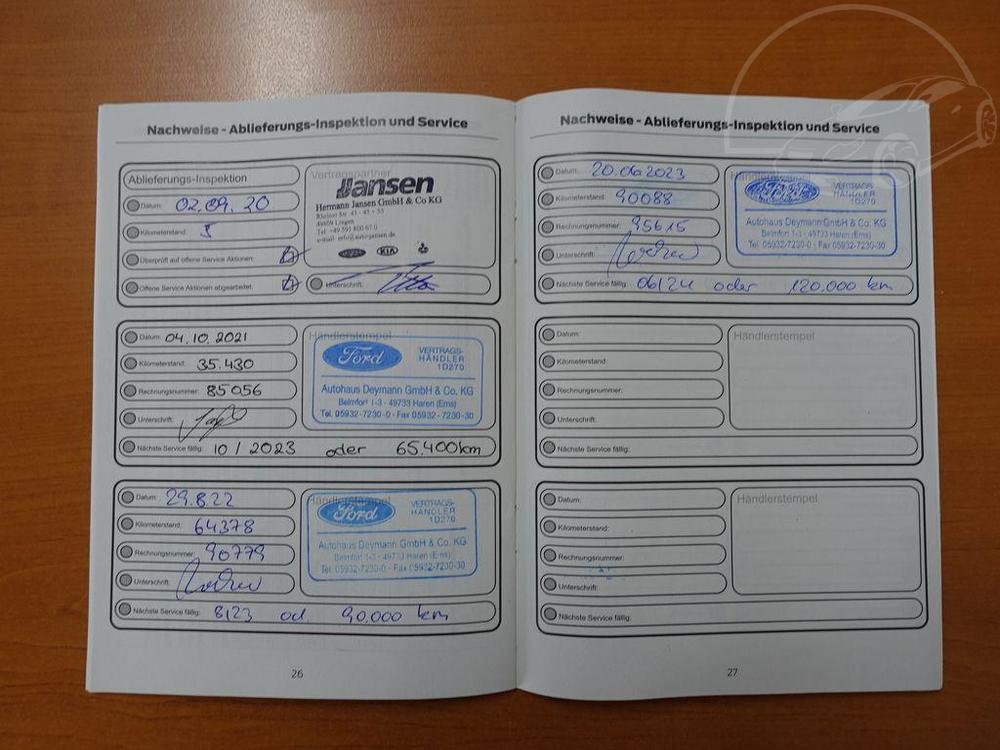 Nachweise - Ablieferungs-Inspektion und Service
Ablieferungs-Inspektion
Datum: 02.09.20
Kilometerstand: 5
Überprüft auf offene Service Aktionen:
Offene Service Aktionen abgearbeitet:
Vertragspartner
Jansen
Hermann Jansen GmbH & Co KG
Rheiner Str. 41 - 43 + 55
49809 Lingen
Tel. +49 591 800 67 0
e-mail: info@auto-jansen.de
Ford KIA
Unterschrift:
Datum: 04.10.2021
Kilometerstand: 35.430
Rechnungsnummer: 85056
Unterschrift:
Nächste Service fällig: 10 / 2023 oder 65.400km
Händlerstempel
Ford VERTRAGS-
HÄNDLER
1D270
Autohaus Deymann GmbH & Co. KG
Beimfort 1-3 - 49733 Haren (Ems)
Tel. 05932-7230-0 - Fax 05932-7230-30
Datum: 29.8.22
Kilometerstand: 64378
Rechnungsnummer: 90779
Unterschrift:
Nächste Service fällig: 8/23 od 90.000 km
Händlerstempel
Ford VERTRAGS-
HÄNDLER
1D270
Autohaus Deymann GmbH & Co. KG
Beimfort 1-3 - 49733 Haren (Ems)
Tel. 05932-7230-0 - Fax 05932-7230-30
26
Nachweise - Ablieferungs-Inspektion und Service
Datum: 20.06.2023
Kilometerstand: 90088
Rechnungsnummer: 95615
Unterschrift:
Nächste Service fällig: 06/24 oder 120.000 km
Händlerstempel
Ford VERTRAGS-
HÄNDLER
1D270
Autohaus Deymann GmbH & Co. KG
Beimfort 1-3 - 49733 Haren (Ems)
Tel. 05932-7230-0 - Fax 05932-7230-30
Datum:
Kilometerstand:
Rechnungsnummer:
Unterschrift:
Nächste Service fällig:
Händlerstempel
Datum:
Kilometerstand:
Rechnungsnummer:
Unterschrift:
Nächste Service fällig:
Händlerstempel
27